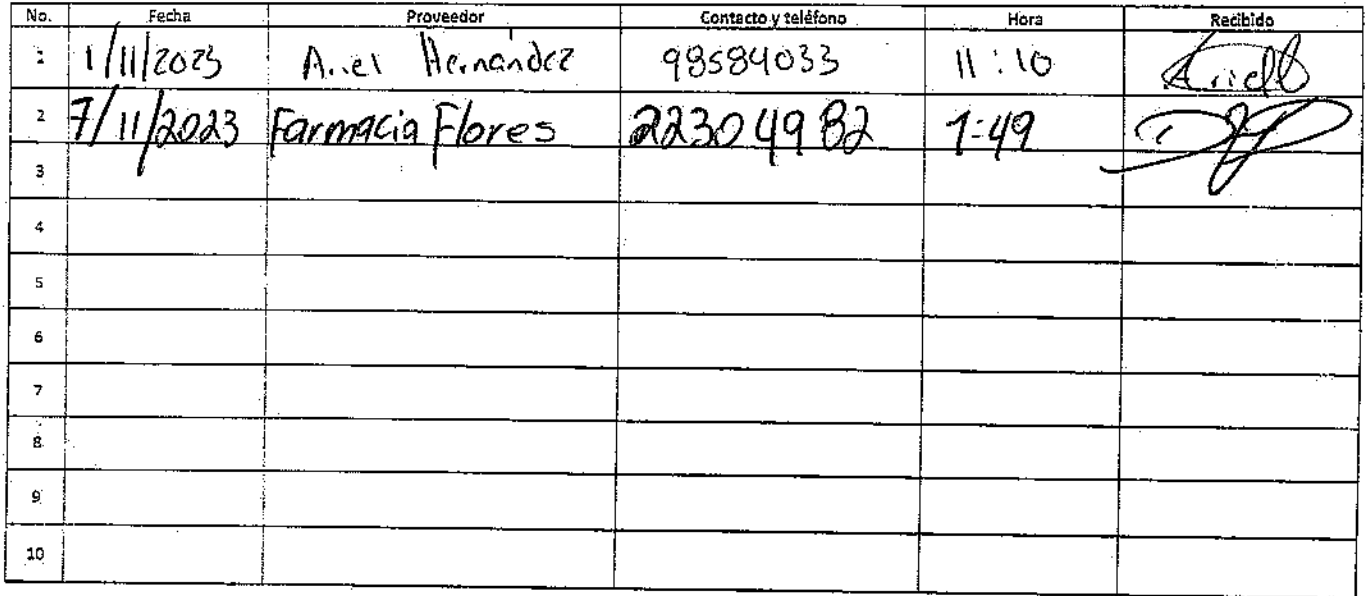 No. Fecha Proveedor Contacto y teléfono Hora Recibido
1 1/11/2023 Ariel Hernández 98584033 11:10
2 7/11/2023 Farmacia Flores 22304982 1:49
3
4
5
6
7
8
9
10